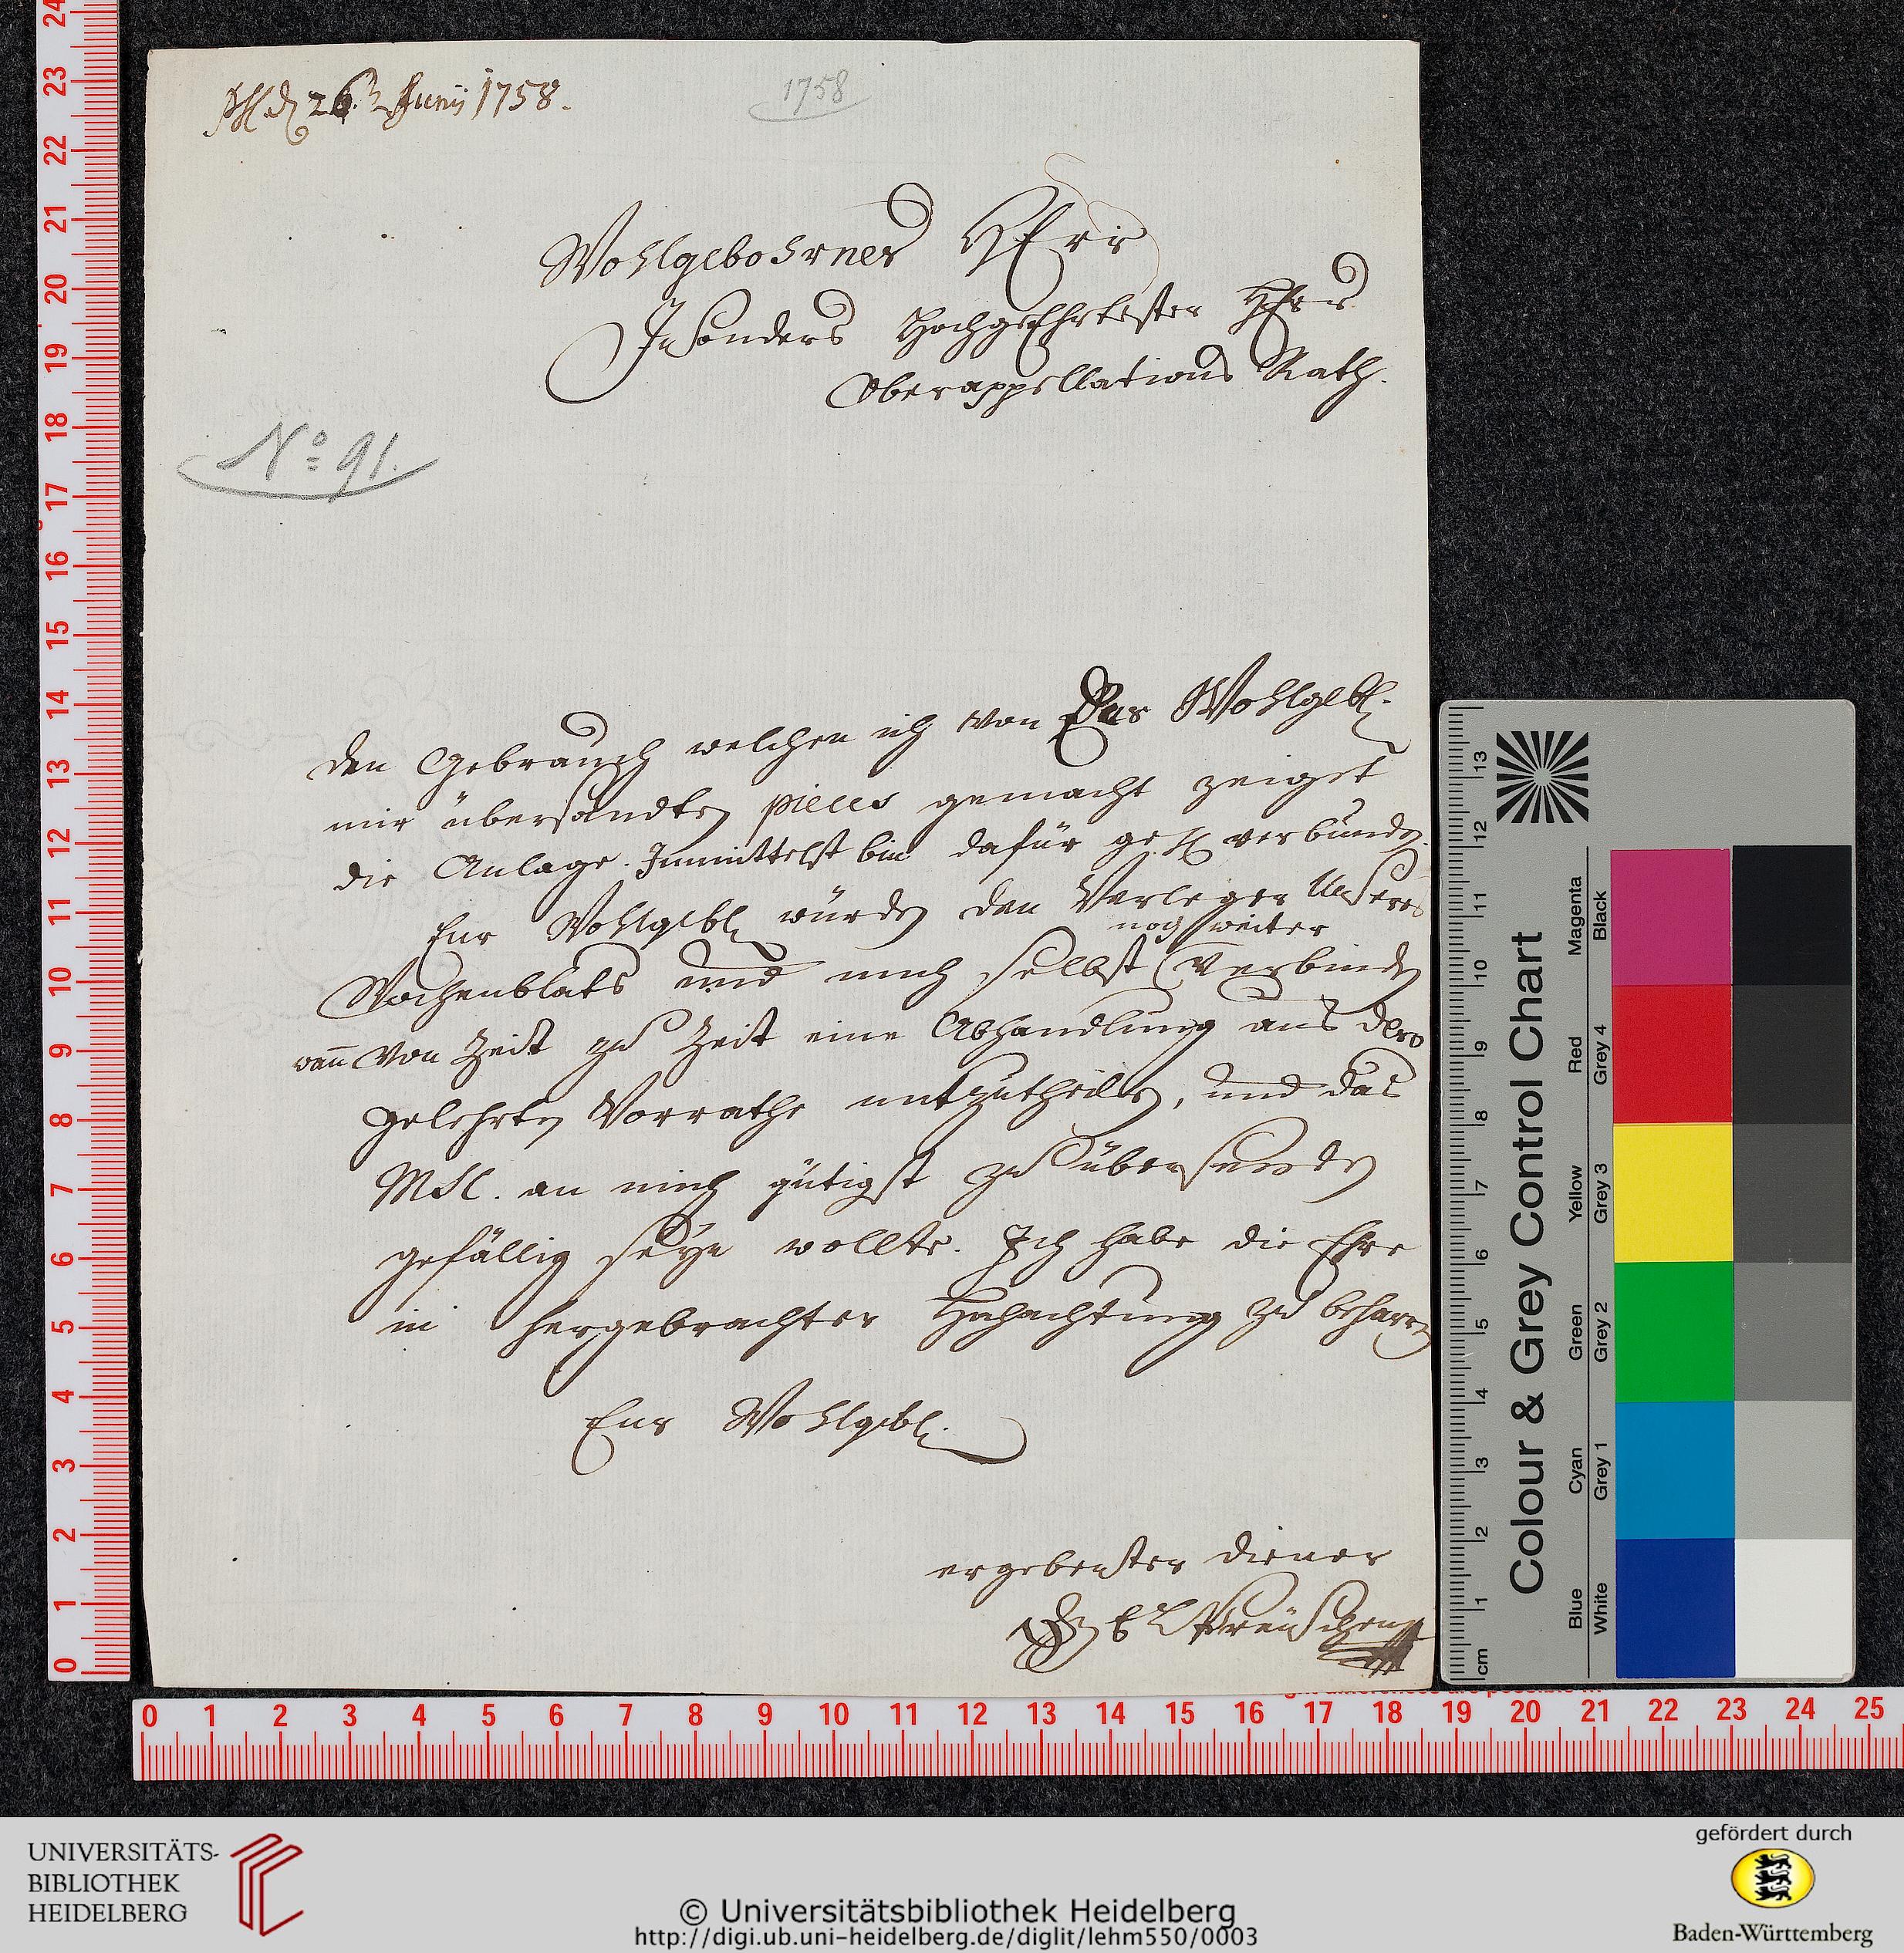 d 26. Junij 1758.
1758
Wohlgebohrner HErr
Insonders HochgeEhrtester HErr
Oberappellations Rath.
No 91.
den Gebrauch welchen ich von Eur Wohlgebl.
mir übersandten pieces gemacht zeiget
die Anlage. Inmittelst bin dafür verbunden.
Eur Wohlgebl würden den Verleger Unseres
noch weiter
Wochenblats und mich selbst verbinden
wann von Zeit zu Zeit eine Abhandlung aus dero
gelehrten Vorrathe mitzutheilen, und das
MSC. an mich gütigst zu übersenden
gefällig seyn wollte. Ich habe die Ehre
in hergebrachter Hochachtung zu beharren
Eur Wohlgebl.
ergebenster Diener
Preuschen
24
23
22
21
20
19
18
17
16
15
14
13
12
11
10
9
8
7
6
5
4
3
2
1
0
0 1 2 3 4 5 6 7 8 9 10 11 12 13 14 15 16 17 18 19 20 21 22 23 24 25
Colour & Grey Control Chart
Blue Cyan Green Yellow Red Magenta
White Grey 1 Grey 2 Grey 3 Grey 4 Black
cm 1 2 3 4 5 6 7 8 9 10 11 12 13
UNIVERSITÄTS-
BIBLIOTHEK
HEIDELBERG
© Universitätsbibliothek Heidelberg
http://digi.ub.uni-heidelberg.de/diglit/lehm550/0003
gefördert durch
Baden-Württemberg